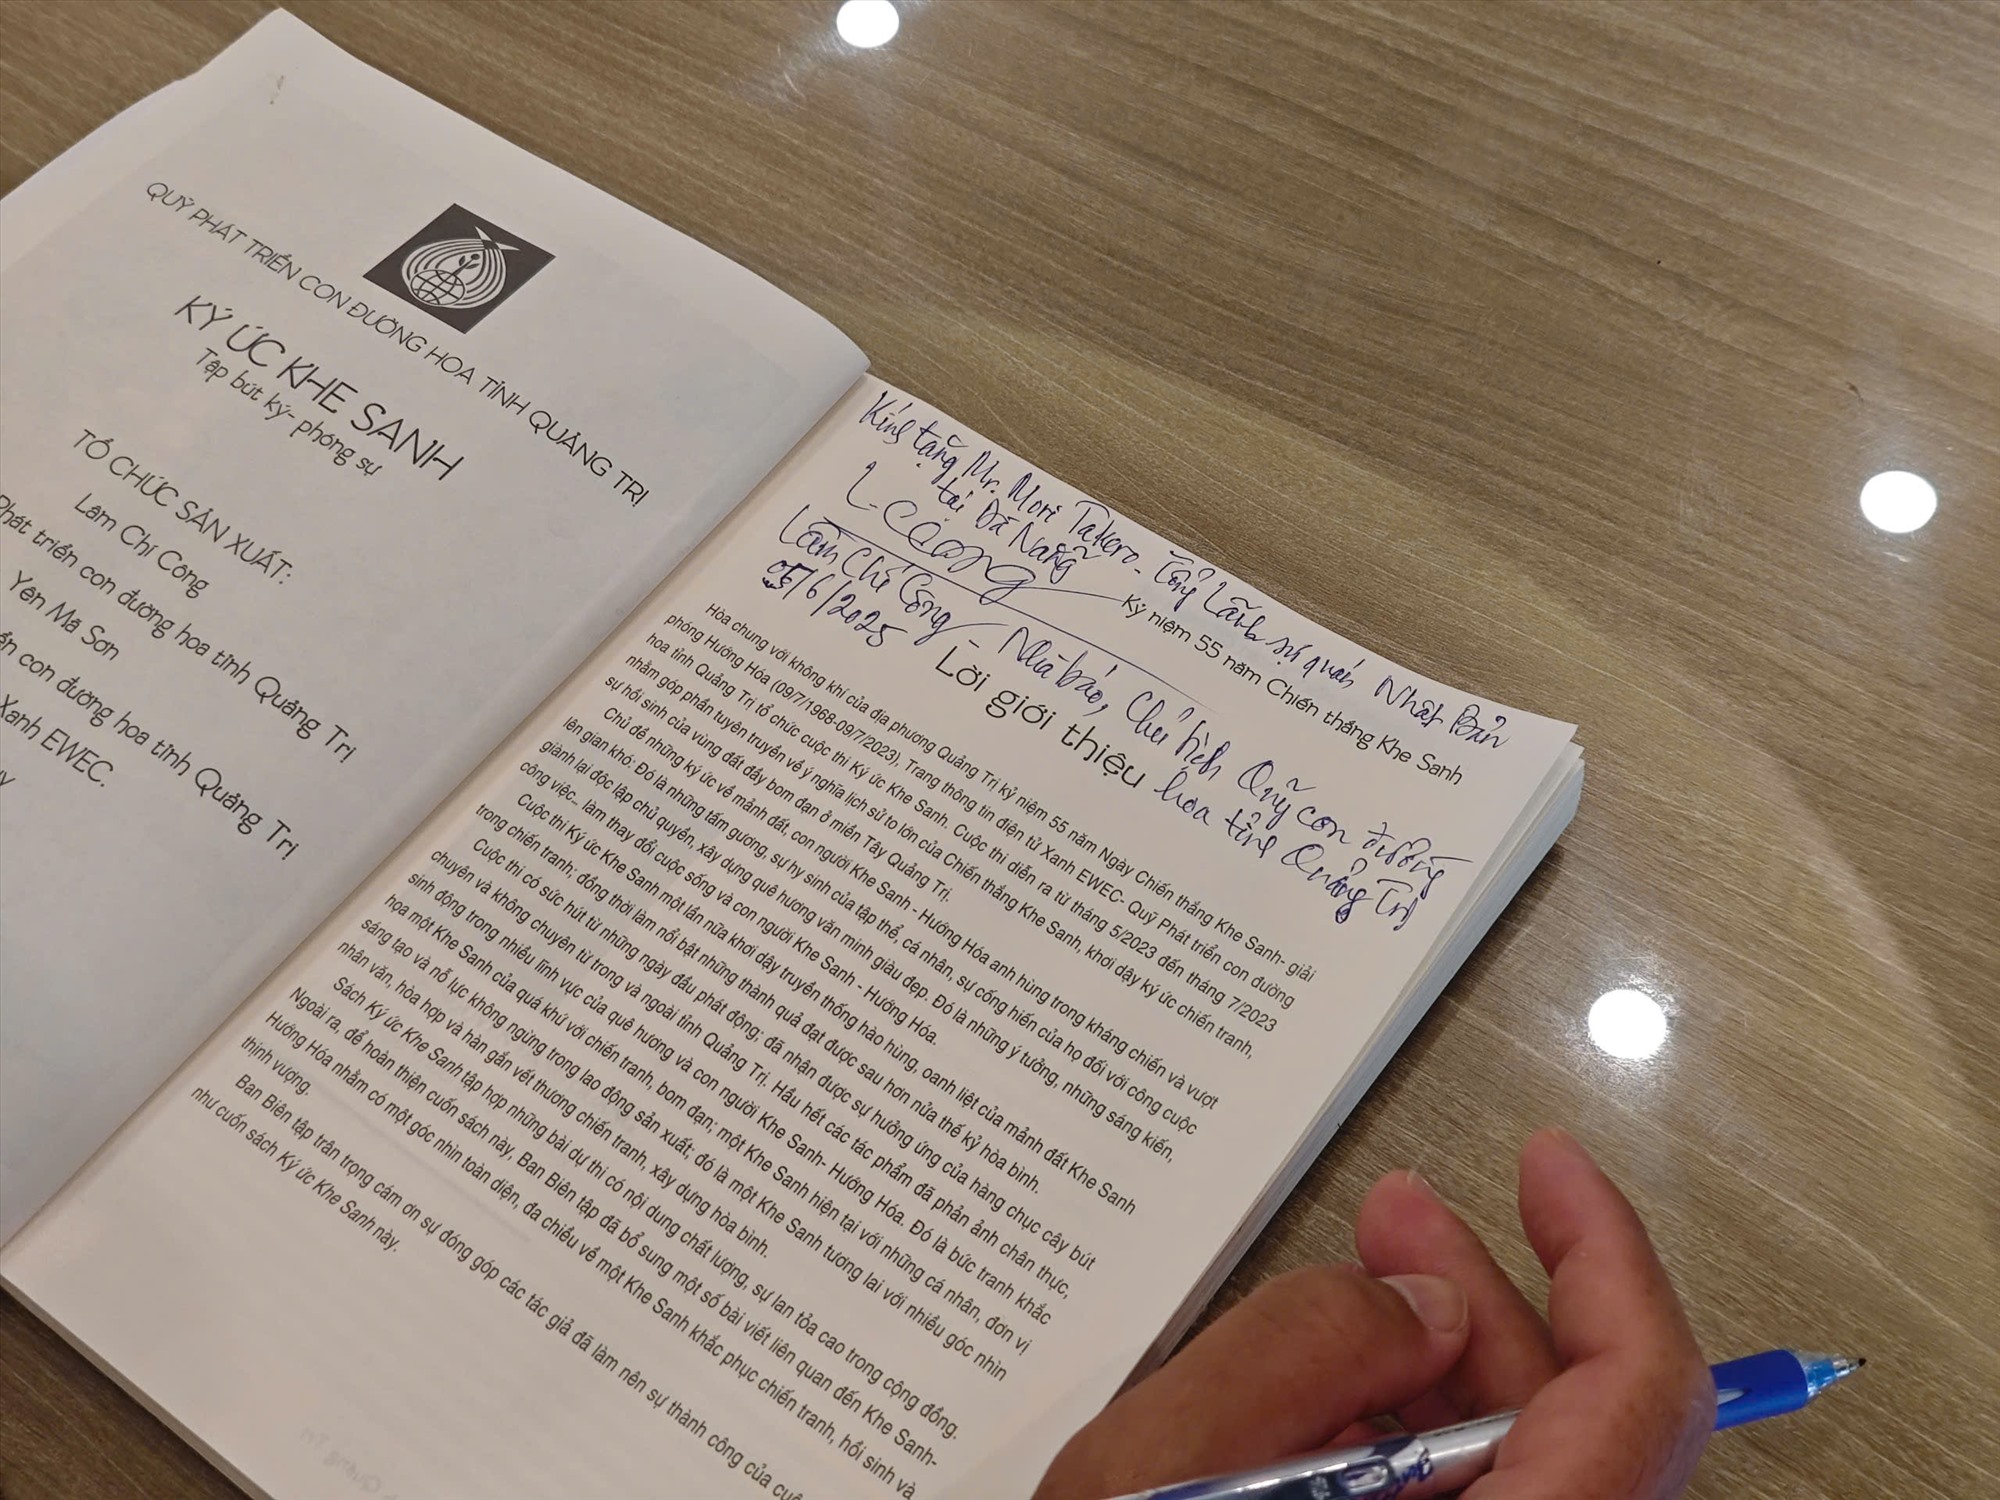 QUỸ PHÁT TRIỂN CON ĐƯỜNG HOA TỈNH QUẢNG TRỊ
KÝ ỨC KHE SANH
Tập bút ký- phóng sự
TỔ CHỨC SẢN XUẤT:
Lâm Chí Công
Phát triển con đường hoa tỉnh Quảng Trị
Yên Mã Sơn
con đường hoa tỉnh Quảng Trị
Xanh EWEC.
Kính tặng Mr. Mori Takero - Tổng Lãnh sự quán Nhật Bản
tại Đà Nẵng
L-Công
Lâm Chí Công - Nhà báo, Chủ tịch Quỹ con đường
hoa tỉnh Quảng Trị
05/6/2025
Kỷ niệm 55 năm Chiến thắng Khe Sanh
Lời giới thiệu
Hòa chung với không khí của địa phương Quảng Trị kỷ niệm 55 năm Ngày Chiến thắng Khe Sanh- giải
phóng Hướng Hóa (09/7/1968-09/7/2023), Trang thông tin điện tử Xanh EWEC- Quỹ Phát triển con đường
hoa tỉnh Quảng Trị tổ chức cuộc thi Ký ức Khe Sanh. Cuộc thi diễn ra từ tháng 5/2023 đến tháng 7/2023
nhằm góp phần tuyên truyền về ý nghĩa lịch sử to lớn của Chiến thắng Khe Sanh, khơi dậy ký ức chiến tranh,
sự hồi sinh của vùng đất đầy bom đạn ở miền Tây Quảng Trị.
Chủ đề những ký ức về mảnh đất, con người Khe Sanh - Hướng Hóa anh hùng trong kháng chiến và vượt
lên gian khó: Đó là những tấm gương, sự hy sinh của tập thể, cá nhân, sự cống hiến của họ đối với công cuộc
giành lại độc lập chủ quyền, xây dựng quê hương văn minh giàu đẹp. Đó là những ý tưởng, những sáng kiến,
công việc... làm thay đổi cuộc sống và con người Khe Sanh - Hướng Hóa.
Cuộc thi Ký ức Khe Sanh một lần nữa khơi dậy truyền thống hào hùng, oanh liệt của mảnh đất Khe Sanh
trong chiến tranh; đồng thời làm nổi bật những thành quả đạt được sau hơn nửa thế kỷ hòa bình.
Cuộc thi có sức hút từ những ngày đầu phát động; đã nhận được sự hưởng ứng của hàng chục cây bút
chuyên và không chuyên từ trong và ngoài tỉnh Quảng Trị. Hầu hết các tác phẩm đã phản ảnh chân thực,
sinh động trong nhiều lĩnh vực của quê hương và con người Khe Sanh- Hướng Hóa. Đó là bức tranh khắc
họa một Khe Sanh của quá khứ với chiến tranh, bom đạn; một Khe Sanh hiện tại với những cá nhân, đơn vị
sáng tạo và nỗ lực không ngừng trong lao động sản xuất; đó là một Khe Sanh tương lai với nhiều góc nhìn
nhân văn, hòa hợp và hàn gắn vết thương chiến tranh, xây dựng hòa bình.
Sách Ký ức Khe Sanh tập hợp những bài dự thi có nội dung chất lượng, sự lan tỏa cao trong cộng đồng.
Ngoài ra, để hoàn thiện cuốn sách này, Ban Biên tập đã bổ sung một số bài viết liên quan đến Khe Sanh-
Hướng Hóa nhằm có một góc nhìn toàn diện, đa chiều về một Khe Sanh khắc phục chiến tranh, hồi sinh và
thịnh vượng.
Ban Biên tập trân trọng cám ơn sự đóng góp các tác giả đã làm nên sự thành công của
như cuốn sách Ký ức Khe Sanh này.